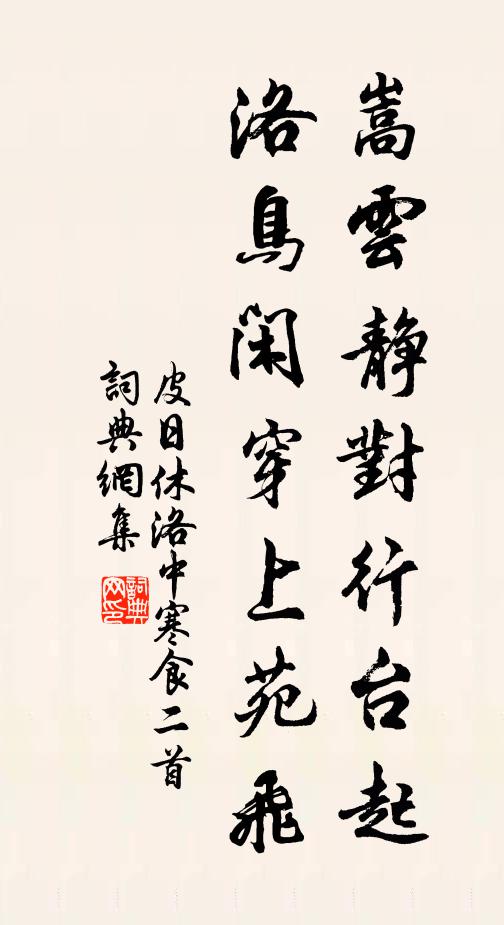 嵩雲靜對行台起
洛鳥閑穿上苑飛
皮日休洛中寒食二首
詞典網集
詞典網印